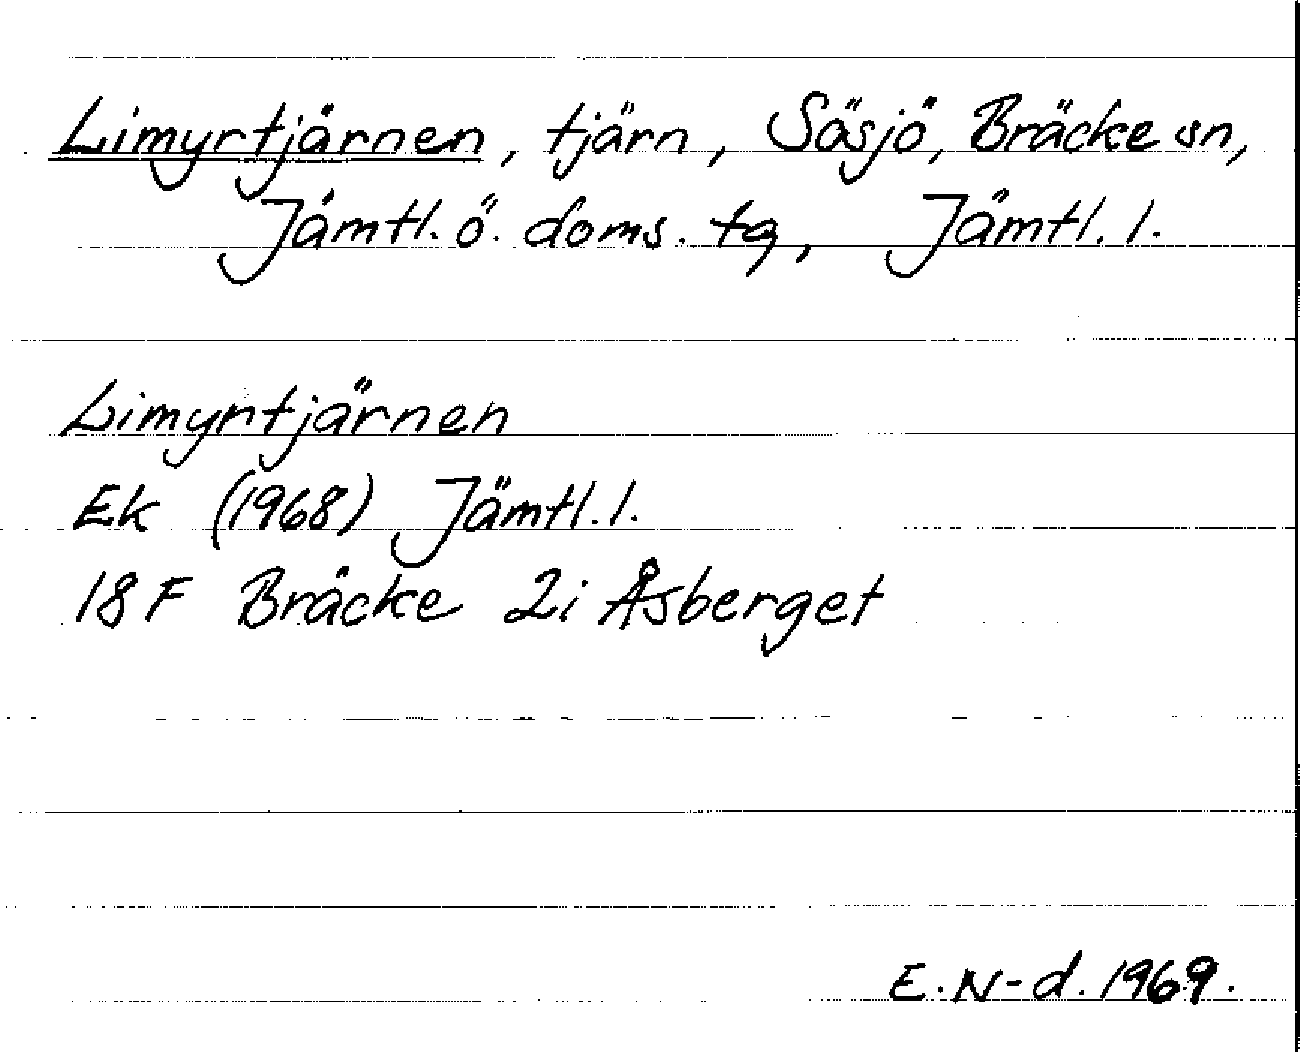 Limyrtjärnen, tjärn, Sösjö, Bräcke sn,
Jämtl. ö. doms. tg, Jämtl. l.
Limyrtjärnen
Ek (1968) Jämtl. l.
18 F Bräcke 2i Åsberget
E. N-d. 1969.